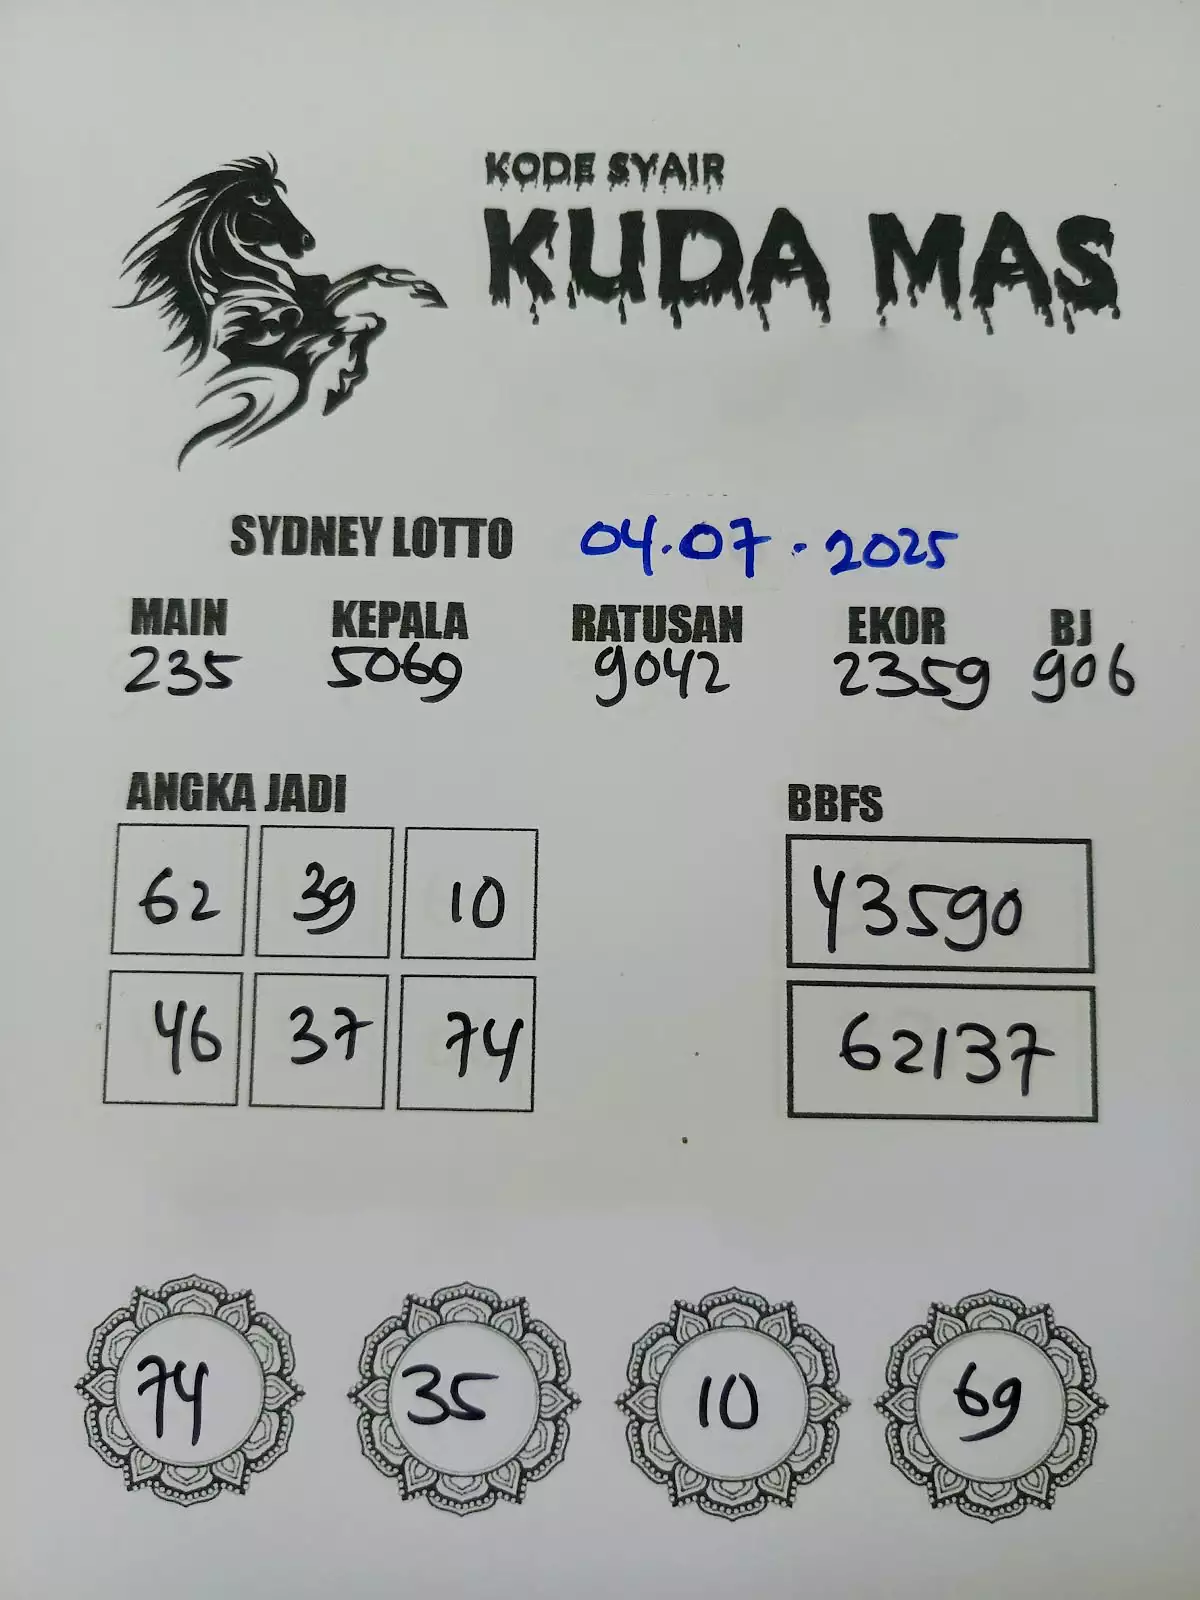 KODE SYAIR
KUDA MAS
SYDNEY LOTTO 04.07.2025
MAIN KEPALA RATUSAN EKOR BJ
235 5069 9042 2359 906
ANGKA JADI BBFS
62 39 10 43590
46 37 74 62137
74 35 10 69